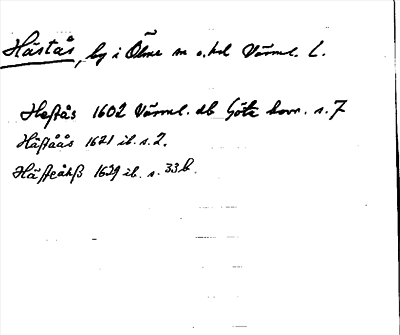 Hästås, by i Ölme sn o. hd Värml. L.
Hestås 1602 Värml. db Götz korr. s. 7
Häståås 1621 ib. s. 2.
Hästeåhß 1629 ib. s. 33b.